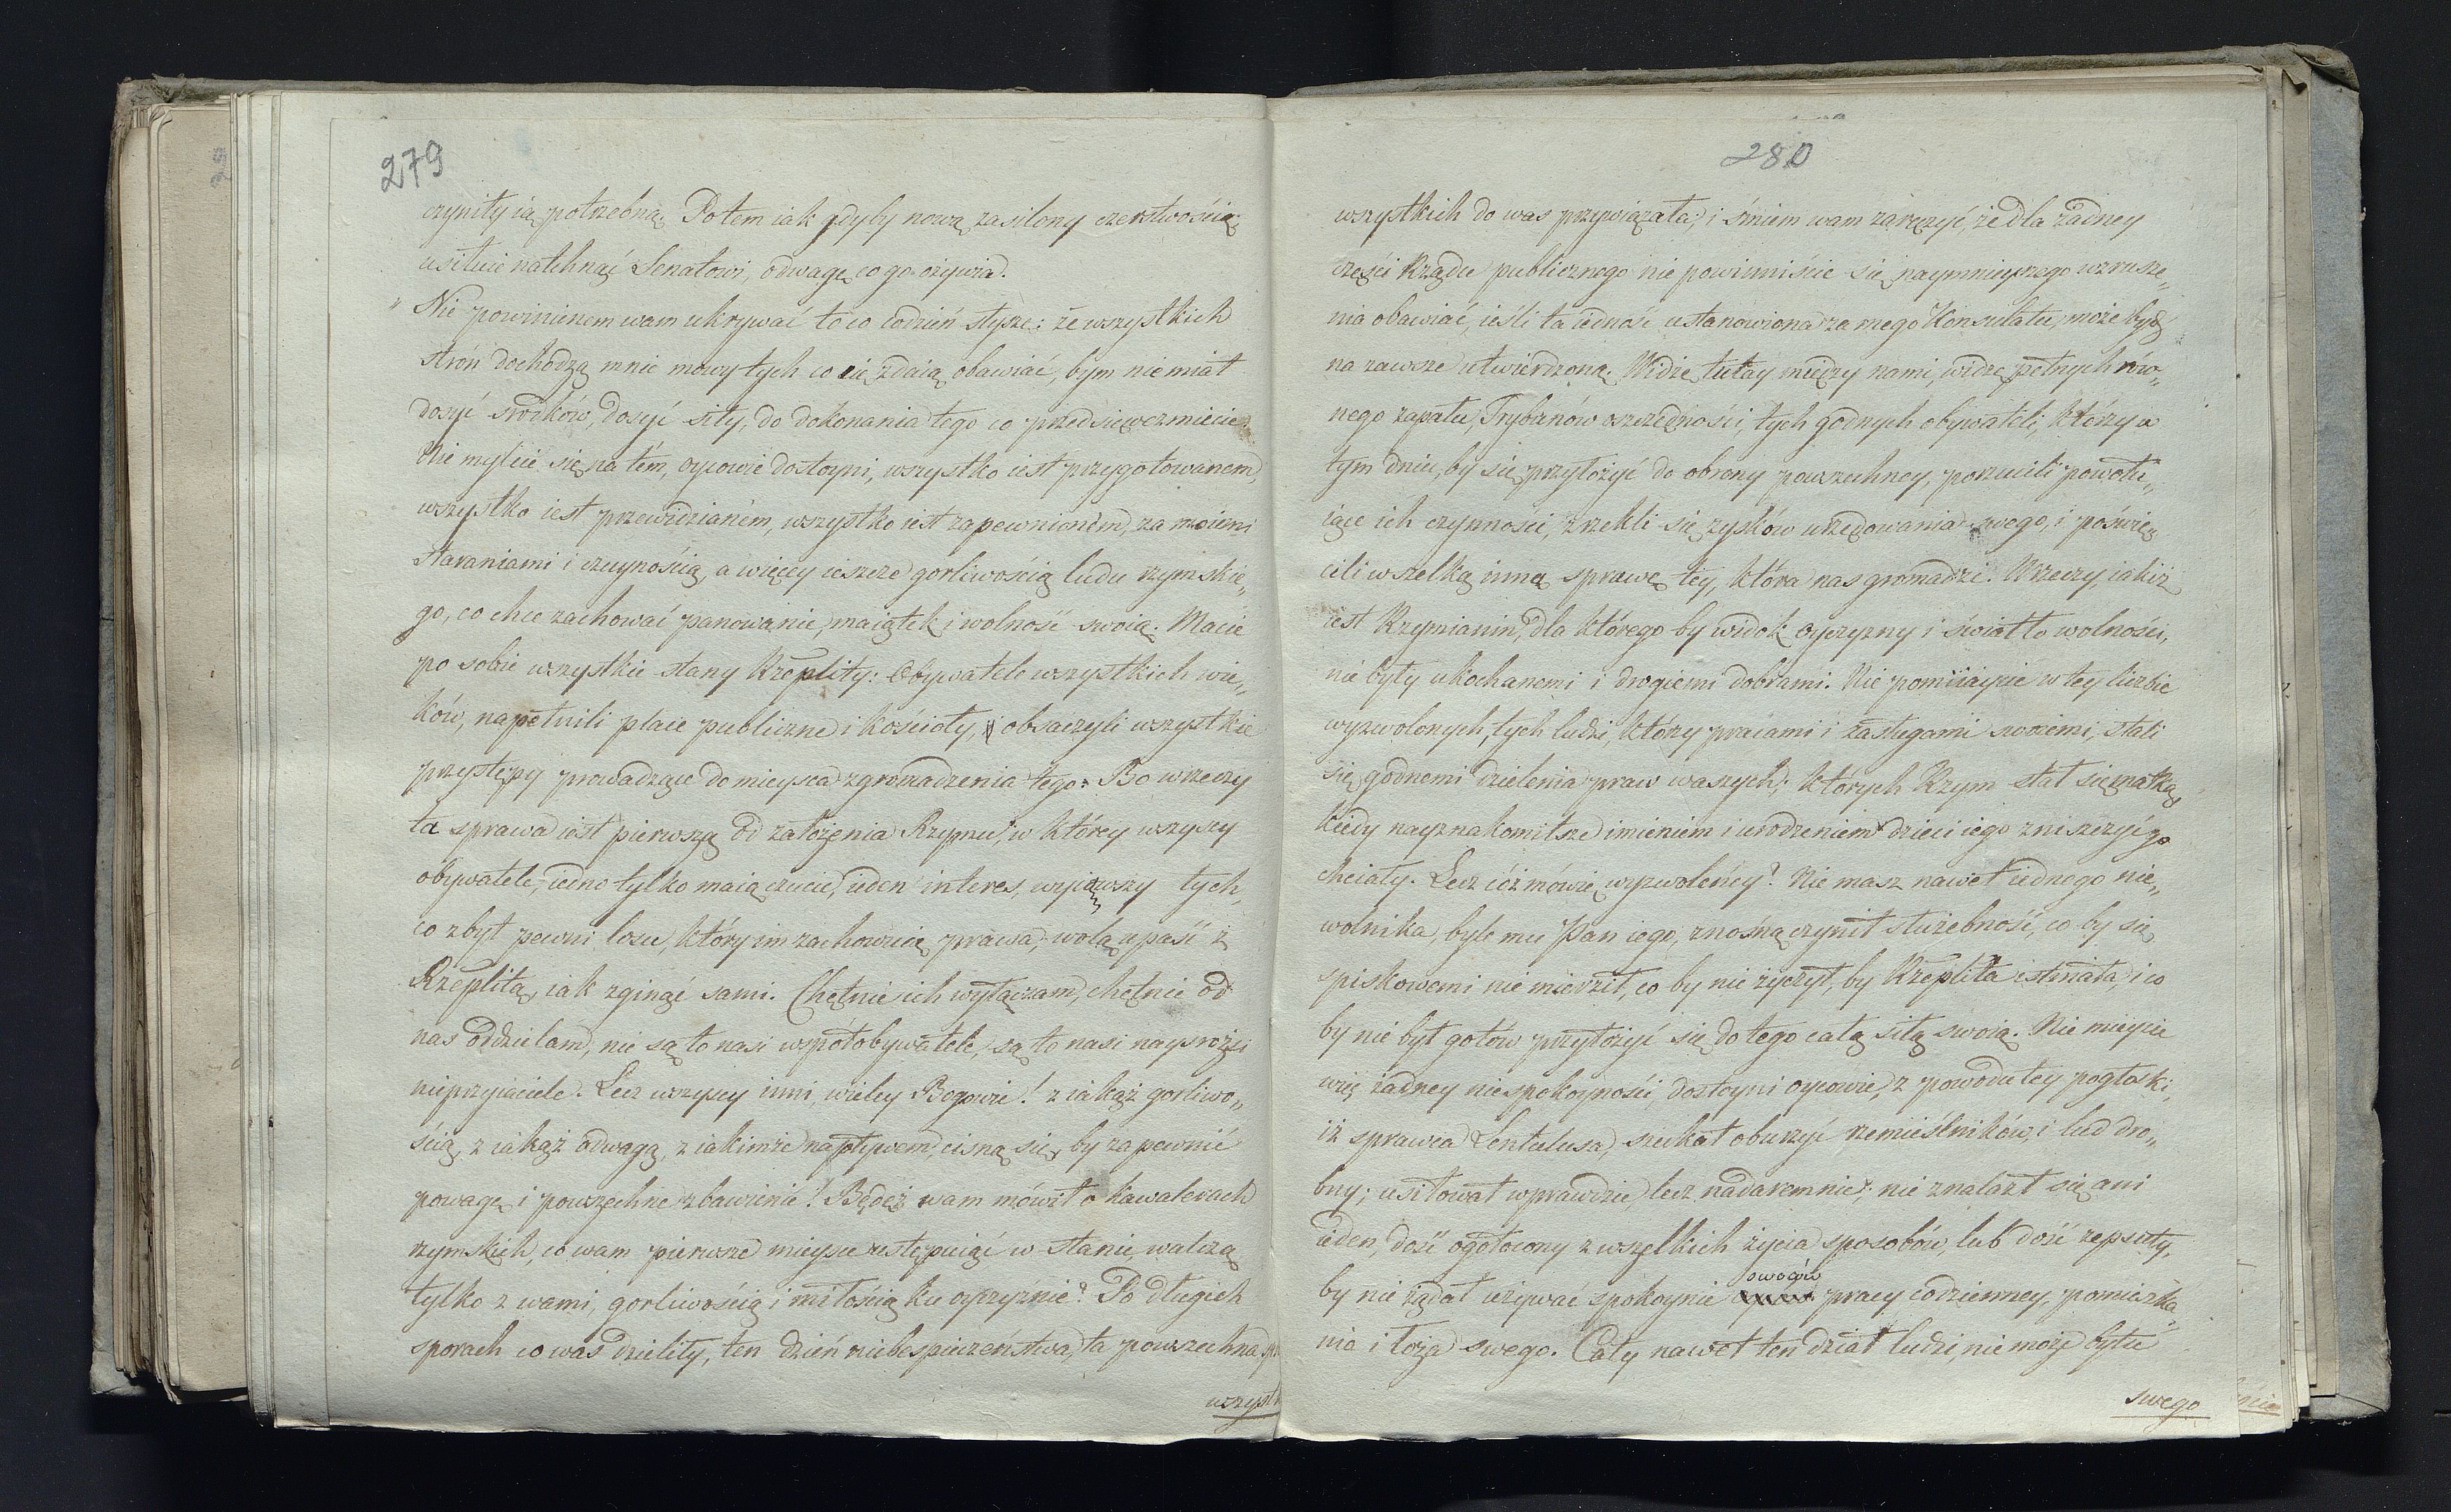 279
czyniły ią potrzebną. Potem iak gdyby nową zasilony czerstwością,
usiłuie natchnąć Senatowi, odwagę co go ożywia.
„ Nie powinienem wam ukrywać to co codzień słyszę: ze wszystkich
stron dochodzą mnie mowy tych co się zdaią obawiać, bym nie miał
dosyć srodków, dosyć siły, do dokonania tego co przedsięwezmiecie.
Nie mylcie się na tém, oycowie dostoyni, wszystko iest przygotowanem,
wszystko iest przewidzianém, wszystko iest zapewnioném, za moiemi
staraniami i czuynością, a więcey ieszcze gorliwością ludu rzymskie„
go, co chce zachować panowanie, maiątek i wolność swoią. Macie
po sobie wszystkie stany Rzeplity: Obywatele wszystkich wie„
ków, napełnili place publiczne i kościoły, i obsaczyli wszystkie
przystępy prowadzące do mieysca zgromadzenia tego. Bo w rzeczy
ta sprawa iest pierwszą od założenia Rzymu, w którey wszyscy
obywatele, iedno tylko maią czucie, ieden interes, wyiąwszy tych,
co zbyt pewni losu, który im zachowuią prawa, wolą upaść z
Rzeplitą, iak zginąć sami. Chętnie ich wyłączam, chętnie od
nas oddzielam, nie są to nasi współobywatele, są to nasi naysrożsi
nieprzyiaciele. Lecz wszyscy inni, wielcy Bogowie! z iakąż gorliwo„
ścią, z iakąż odwagą, z iakimże napływem, cisną się, by zapewnić
powagę i powszechne zbawienie! Będęż wam mówił o kawalerach
rzymskich, co wam pierwsze mieysce ustępuiąc w stanie, walczą
tylko z wami, gorliwością i miłością ku oyczyznie? Po długich
sporach co was dzieliły, ten dzień niebespieczeństwa, ta powszechna
wszyst
280
wszystkich do was przywiązała; i śmiem wam zaręczyć, że dla żadney
części Rządu publicznego nie powinniście się naymnieyszego wzrusze„
nia obawiać, ieśli ta iedność ustanowiona za mego Konsulatu, może być
na zawsze utwierdzoną. Widzę tutay między nami, widzę pełnych rów„
nego zapału, Trybunów oszczędności, tych godnych obywateli, którzy w
tym dniu, by się przyłożyć do obrony powszechney, porzucili powołu„
iące ich czynności, zrzekli się zysków urzędowania swego, i poświę„
cili wszelką inną sprawę tey, która nas gromadzi. W rzeczy, iakiż
iest Rzymianin, dla którego by widok oyczyzny i światło wolności,
nie były ukochanemi i drogiemi dobrami. Nie pomiiaycie w tey liczbie
wyzwolonych, tych ludzi, którzy pracami i zasługami swoiemi, stali
się godnemi dzielenia praw waszych; których Rzym stał się matką,
kiedy nayznakomitsze imieniem i urodzeniem dzieci iego zniszczyć go
chciały. Lecz cóż mówię wyzwoleńcy? Nie masz nawet iednego nie„
wolnika, byle mu Pan iego, znośną czynił służebność, co by się
spiskowemi nie mierził, co by nie życzył, by Rzeplita istniała, i co
by nie był gotów przyłożyć się do tego całą siłą swoią. Nie mieycie
więc żadney niespokoyności, dostoyni oycowie, z powodu tey pogłoski,
iż sprawca Lentulusa, szukał oburzyć rzemieślników, i lud dro„
bny; usiłował wprawdzie, lecz nadaremnie; nie znalazł się ani
ieden, dość ogołocony z wszelkich życia sposobów, lub dość zepsuty,
by nie żądał używać spokoynie swoiéy pracy codzienney, pomieszka„
nia i łoża swego. Cały nawet ten dział ludzi, nie może bytu
swego